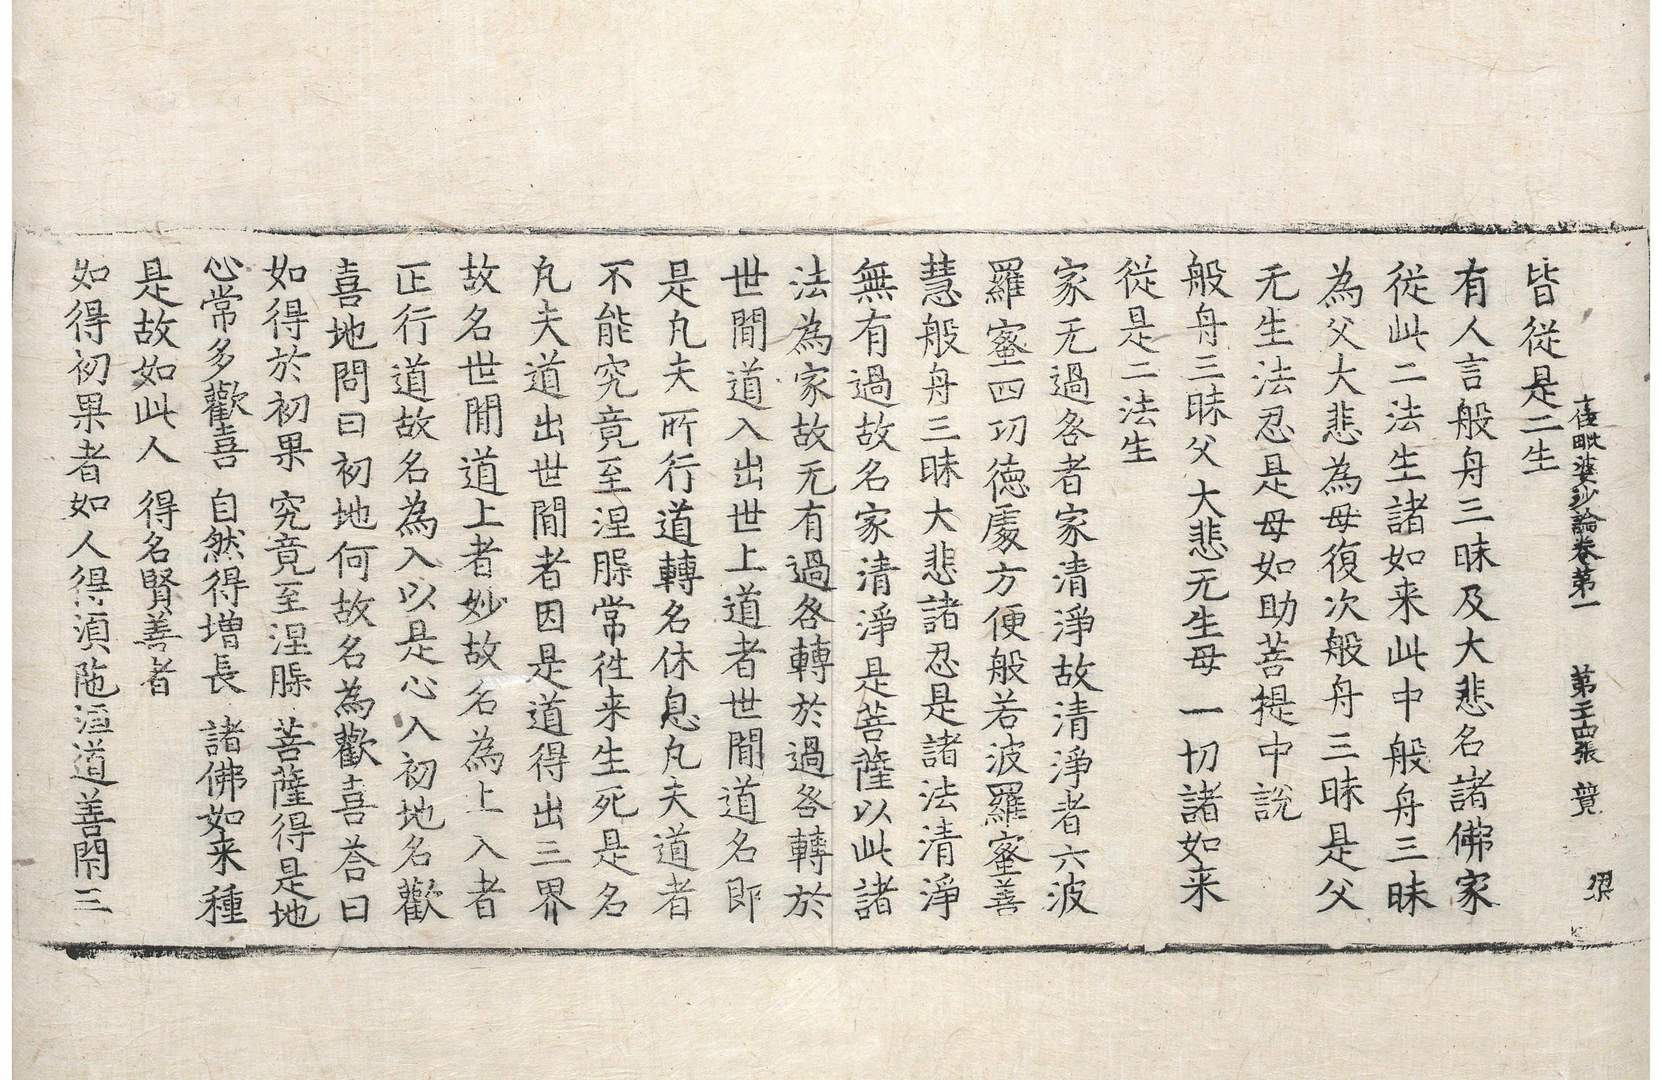 十住毗婆沙論卷第一　第二十四張　竟　梁
皆從是二生
有人言般舟三昧及大悲名諸佛家
從此二法生諸如来此中般舟三昧
為父大悲為母復次般舟三昧是父
无生法忍是母如助菩提中說
般舟三昧父大悲无生母一切諸如来
從是二法生
家无過咎者家清淨故清淨者六波
羅蜜四功德處方便般若波羅蜜善
慧般舟三昧大悲諸忍是諸法清淨
無有過故名家清淨是菩薩以此諸
法為家故无有過咎轉於過咎轉於
世間道入出世上道者世間道名即
是凡夫所行道轉名休息凡夫道者
不能究竟至涅槃常徃来生死是名
凡夫道出世間者因是道得出三界
故名世間道上者妙故名為上入者
正行道故名為入以是心入初地名歡
喜地問曰初地何故名為歡喜荅曰
如得於初果　究竟至涅槃　菩薩得是地
心常多歡喜　自然得增長　諸佛如来種
是故如此人　得名賢善者
如得初果者如人得湏陁洹道善閇三